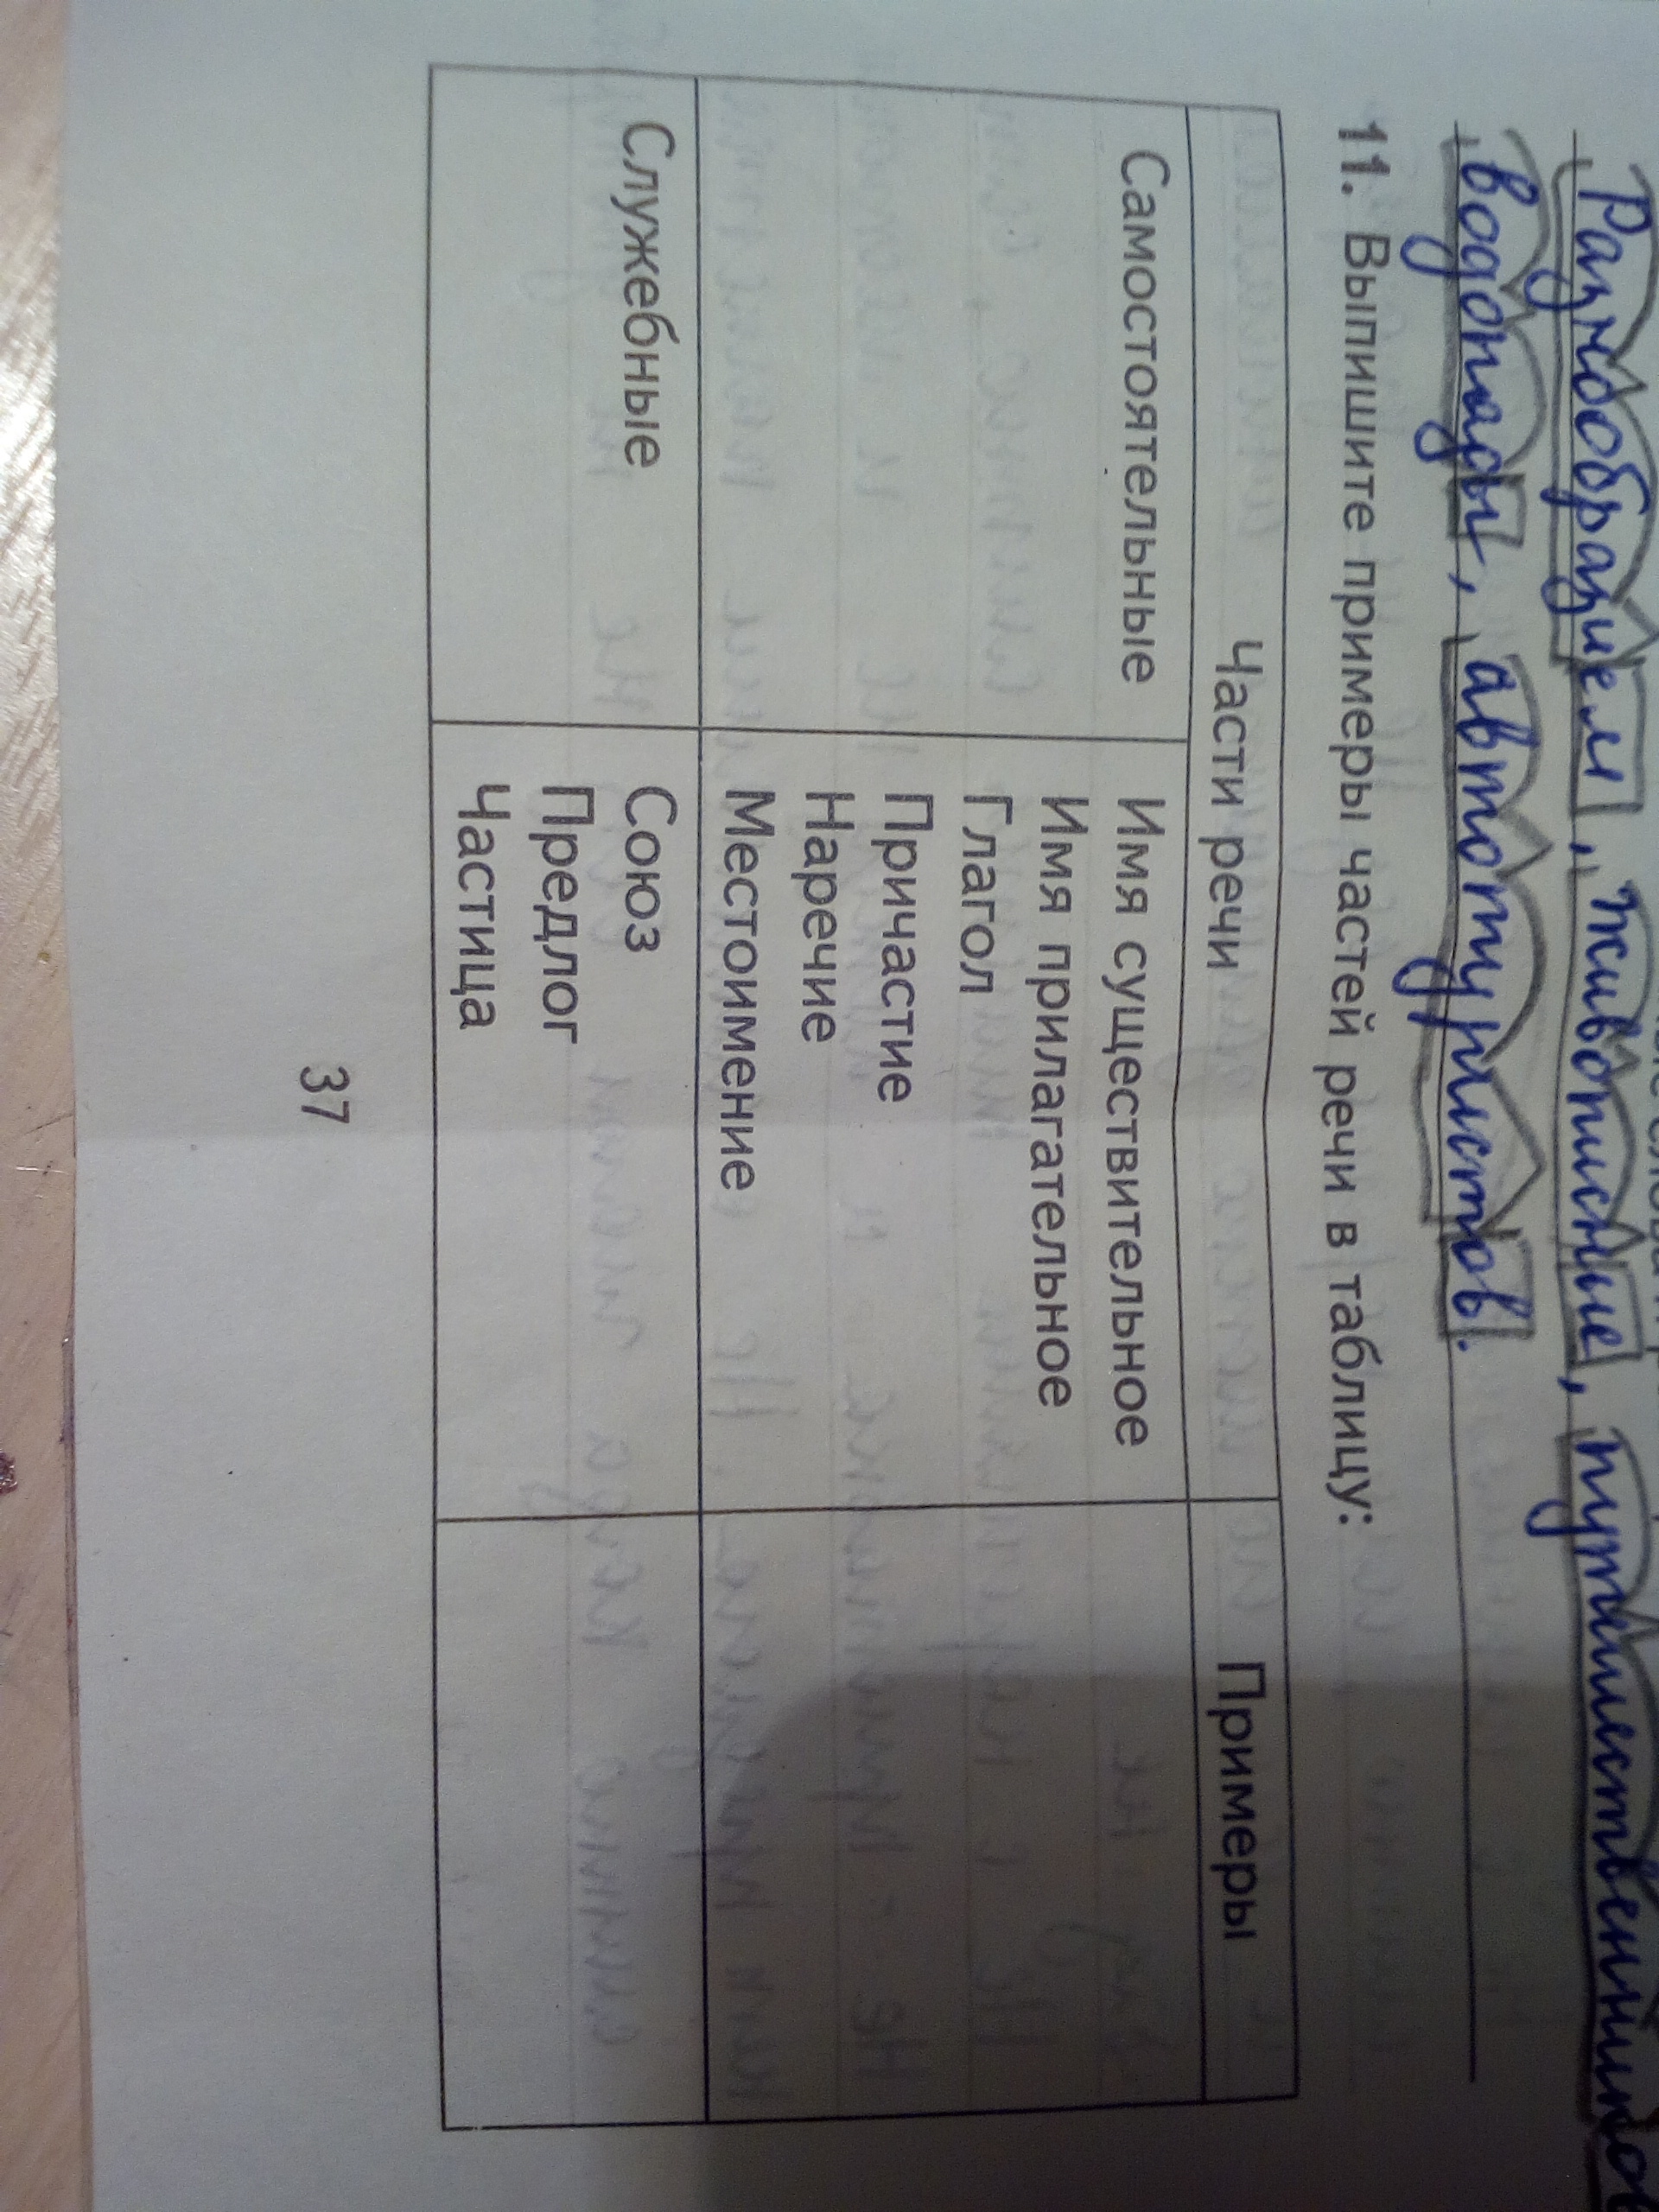 Разнообразием, живописные, путешественников
водопады, автотуристов.
11. Выпишите примеры частей речи в таблицу:
Части речи Примеры
Самостоятельные Имя существительное
Имя прилагательное
Глагол
Причастие
Наречие
Местоимение
Служебные Союз
Предлог
Частица
37